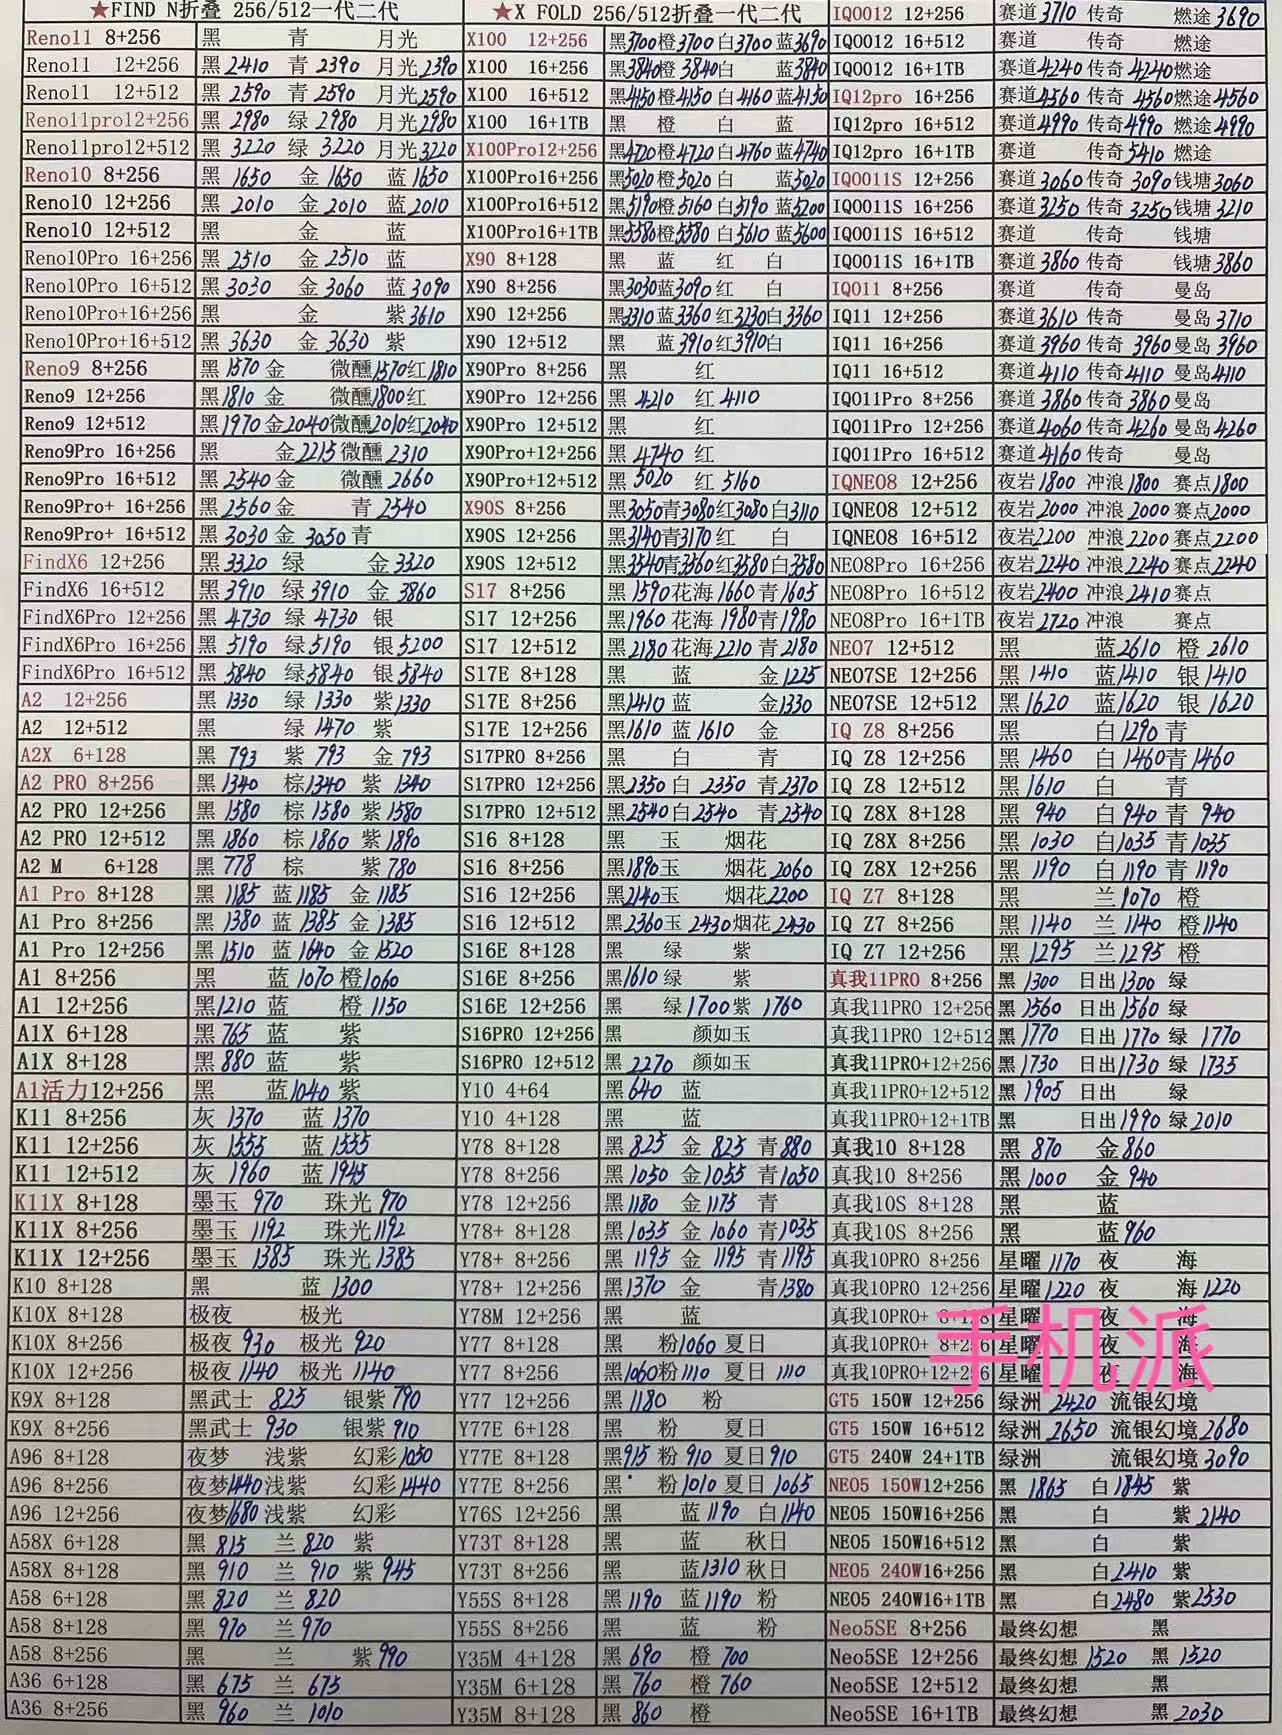 ★FIND N折叠 256/512一代二代 ★X FOLD 256/512折叠一代二代 IQOO12 12+256 赛道3710 传奇 燃途3690
Reno11 8+256 黑 青 月光 X100 12+256 黑3700橙3700白3700蓝3690 IQOO12 16+512 赛道 传奇 燃途
Reno11 12+256 黑2410 青2390 月光2390 X100 16+256 黑3840橙3840白 蓝3840 IQOO12 16+1TB 赛道4240传奇4240燃途
Reno11 12+512 黑2590 青2590 月光2590 X100 16+512 黑4150橙4150白4160蓝4150 IQ12pro 16+256 赛道4560传奇4560燃途4560
Reno11pro12+256 黑2980 绿2980 月光2980 X100 16+1TB 黑 橙 白 蓝 IQ12pro 16+512 赛道4990传奇4990燃途4990
Reno11pro12+512 黑3220 绿3220 月光3220 X100Pro12+256 黑4720橙4720白4760蓝4740 IQ12pro 16+1TB 赛道 传奇5410燃途
Reno10 8+256 黑1650 金1650 蓝1650 X100Pro16+256 黑5020橙5020白 蓝5020 IQOO11S 12+256 赛道3060传奇3090钱塘3060
Reno10 12+256 黑2010 金2010 蓝2010 X100Pro16+512 黑5190橙5160白5190蓝5200 IQOO11S 16+256 赛道3250传奇3250钱塘3210
Reno10 12+512 黑 金 蓝 X100Pro16+1TB 黑5580橙5580白5610蓝5600 IQOO11S 16+512 赛道 传奇 钱塘
Reno10Pro 16+256 黑2510 金2510 蓝 X90 8+128 黑 蓝 红 白 IQOO11S 16+1TB 赛道3860传奇 钱塘3860
Reno10Pro 16+512 黑3030 金3060 蓝3090 X90 8+256 黑3030蓝3090红 白 IQOO11 8+256 赛道 传奇 曼岛
Reno10Pro+16+256 黑 金 紫3610 X90 12+256 黑3310蓝3360红3230白3360 IQ11 12+256 赛道3610传奇 曼岛3710
Reno10Pro+16+512 黑3630 金3630 紫 X90 12+512 黑 蓝3910红3910白 IQ11 16+256 赛道3960传奇3960曼岛3960
Reno9 8+256 黑1570金 微醺1570红1810 X90Pro 8+256 黑 红 IQ11 16+512 赛道4110传奇4110曼岛4110
Reno9 12+256 黑1810金 微醺1800红 X90Pro 12+256 黑4210 红4110 IQOO11Pro 8+256 赛道3860传奇3860曼岛
Reno9 12+512 黑1970金2040微醺2010红2040 X90Pro 12+512 黑 红 IQOO11Pro 12+256 赛道4060传奇4260曼岛4260
Reno9Pro 16+256 黑 金2215微醺2310 X90Pro+12+256 黑4740 红 IQOO11Pro 16+512 赛道4160传奇 曼岛
Reno9Pro 16+512 黑2540金 微醺2660 X90Pro+12+512 黑5020 红5160 IQNEO8 12+256 夜岩1800冲浪1800赛点1800
Reno9Pro+ 16+256 黑2560金 青2540 X90S 8+256 黑3050青3080红3080白3110 IQNEO8 12+512 夜岩2000冲浪2000赛点2000
Reno9Pro+ 16+512 黑3030金3050青 X90S 12+256 黑3140青3170红 白 IQNEO8 16+512 夜岩2200冲浪2200赛点2200
FindX6 12+256 黑3320 绿 金3320 X90S 12+512 黑3540青3560红3580白3580 NEO8Pro 16+256 夜岩2240冲浪2240赛点2240
FindX6 16+512 黑3910 绿3910 金3860 S17 8+256 黑1590花海1660青1605 NEO8Pro 16+512 夜岩2400冲浪2410赛点
FindX6Pro 12+256 黑4730 绿4730 银 S17 12+256 黑1960花海1980青1980 NEO8Pro 16+1TB 夜岩2720冲浪 赛点
FindX6Pro 16+256 黑5190 绿5190 银5200 S17 12+512 黑2180花海2210青2180 NEO7 12+512 黑 蓝2610 橙2610
FindX6Pro 16+512 黑5840 绿5840 银5840 S17E 8+128 黑 蓝 金1225 NEO7SE 12+256 黑1410 蓝1410 银1410
A2 12+256 黑1330 绿1330 紫1330 S17E 8+256 黑1410蓝 金1330 NEO7SE 12+512 黑1620 蓝1620 银1620
A2 12+512 黑 绿1470 紫 S17E 12+256 黑1610蓝1610 金 IQ Z8 8+256 黑 白1290青
A2X 6+128 黑793 紫793 金793 S17PRO 8+256 黑 白 青 IQ Z8 12+256 黑1460 白1460青1460
A2 PRO 8+256 黑1340 棕1340 紫1340 S17PRO 12+256 黑2350白2350 青2370 IQ Z8 12+512 黑1610 白 青
A2 PRO 12+256 黑1580 棕1580 紫1580 S17PRO 12+512 黑2540白2540 青2540 IQ Z8X 8+128 黑940 白940青940
A2 PRO 12+512 黑1860 棕1860 紫1890 S16 8+128 黑 玉 烟花 IQ Z8X 8+256 黑1030 白1035青1035
A2 M 6+128 黑778 棕 紫780 S16 8+256 黑1890玉 烟花2060 IQ Z8X 12+256 黑1190 白1190青1190
A1 Pro 8+128 黑1185 蓝1185 金1185 S16 12+256 黑2140玉 烟花2200 IQ Z7 8+128 黑 兰1070 橙
A1 Pro 8+256 黑1380 蓝1385 金1385 S16 12+512 黑2360玉2430烟花2430 IQ Z7 8+256 黑1140 兰1140 橙1140
A1 Pro 12+256 黑1510 蓝1640 金1520 S16E 8+128 黑 绿 紫 IQ Z7 12+256 黑1295 兰1295 橙
A1 8+256 黑 蓝1070橙1060 S16E 8+256 黑1610绿 紫 真我11PRO 8+256 黑1300 日出1300 绿
A1 12+256 黑1210蓝 橙1150 S16E 12+256 黑 绿1700紫1760 真我11PRO 12+256 黑1560 日出1560 绿
A1X 6+128 黑765 蓝 紫 S16PRO 12+256 黑 颜如玉 真我11PRO 12+512 黑1770 日出1770 绿1770
A1X 8+128 黑880 蓝 紫 S16PRO 12+512 黑2270 颜如玉 真我11PRO+12+256 黑1730 日出1730 绿1735
A1活力12+256 黑 蓝1040 紫 Y10 4+64 黑640 蓝 真我11PRO+12+512 黑1905 日出 绿
K11 8+256 灰1370 蓝1370 Y10 4+128 黑 蓝 真我11PRO+12+1TB 黑 日出1990绿2010
K11 12+256 灰1555 蓝1555 Y78 8+128 黑825 金825 青880 真我10 8+128 黑870 金860
K11 12+512 灰1960 蓝1945 Y78 8+256 黑1050 金1055 青1050 真我10 8+256 黑1000 金940
K11X 8+128 墨玉970 珠光970 Y78 12+256 黑1180 金1175 青 真我10S 8+128 黑 蓝
K11X 8+256 墨玉1192 珠光1192 Y78+ 8+128 黑1035 金1060 青1035 真我10S 8+256 黑 蓝960
K11X 12+256 墨玉1385 珠光1385 Y78+ 8+256 黑1195 金1195 青1195 真我10PRO 8+256 星曜1170 夜 海
K10 8+128 黑 蓝1300 Y78+ 12+256 黑1370 金 青1380 真我10PRO 12+256 星曜1220 夜 海1220
K10X 8+128 极夜 极光 Y78M 12+256 黑 蓝 真我10PRO+ 8+128 星曜 夜 海
手机派
K10X 8+256 极夜930 极光920 Y77 8+128 黑 粉1060 夏日 真我10PRO+ 8+256 星曜 夜 海
K10X 12+256 极夜1140 极光1140 Y77 8+256 黑1060粉1110 夏日1110 真我10PRO+12+256 星曜 夜 海
K9X 8+128 黑武士825 银紫790 Y77 12+256 黑1180 粉 GT5 150W 12+256 绿洲2420 流银幻境
K9X 8+256 黑武士930 银紫910 Y77E 6+128 黑 粉 夏日 GT5 150W 16+512 绿洲2650 流银幻境2680
A96 8+128 夜梦 浅紫 幻彩1050 Y77E 8+128 黑915 粉910 夏日910 GT5 240W 24+1TB 绿洲 流银幻境3090
A96 8+256 夜梦1440浅紫 幻彩1440 Y77E 8+256 黑 粉1010 夏日1065 NEO5 150W12+256 黑1865 白1845 紫
A96 12+256 夜梦1680浅紫 幻彩 Y76S 12+256 黑 蓝1190 白1140 NEO5 150W16+256 黑 白 紫2140
A58X 6+128 黑815 兰820 紫 Y73T 8+128 黑 蓝 秋日 NEO5 150W16+512 黑 白 紫
A58X 8+128 黑910 兰910 紫945 Y73T 8+256 黑 蓝1310秋日 NEO5 240W16+256 黑 白2410 紫
A58 6+128 黑820 兰820 Y55S 8+128 黑1190 蓝1190 粉 NEO5 240W16+1TB 黑 白2480 紫2530
A58 8+128 黑970 兰970 Y55S 8+256 黑 蓝 粉 Neo5SE 8+256 最终幻想 黑
A58 8+256 黑 兰 紫990 Y35M 4+128 黑690 橙700 Neo5SE 12+256 最终幻想1520 黑1520
A36 6+128 黑675 兰675 Y35M 6+128 黑760 橙760 Neo5SE 12+512 最终幻想 黑
A36 8+256 黑960 兰1010 Y35M 8+128 黑860 橙 Neo5SE 16+1TB 最终幻想 黑2030